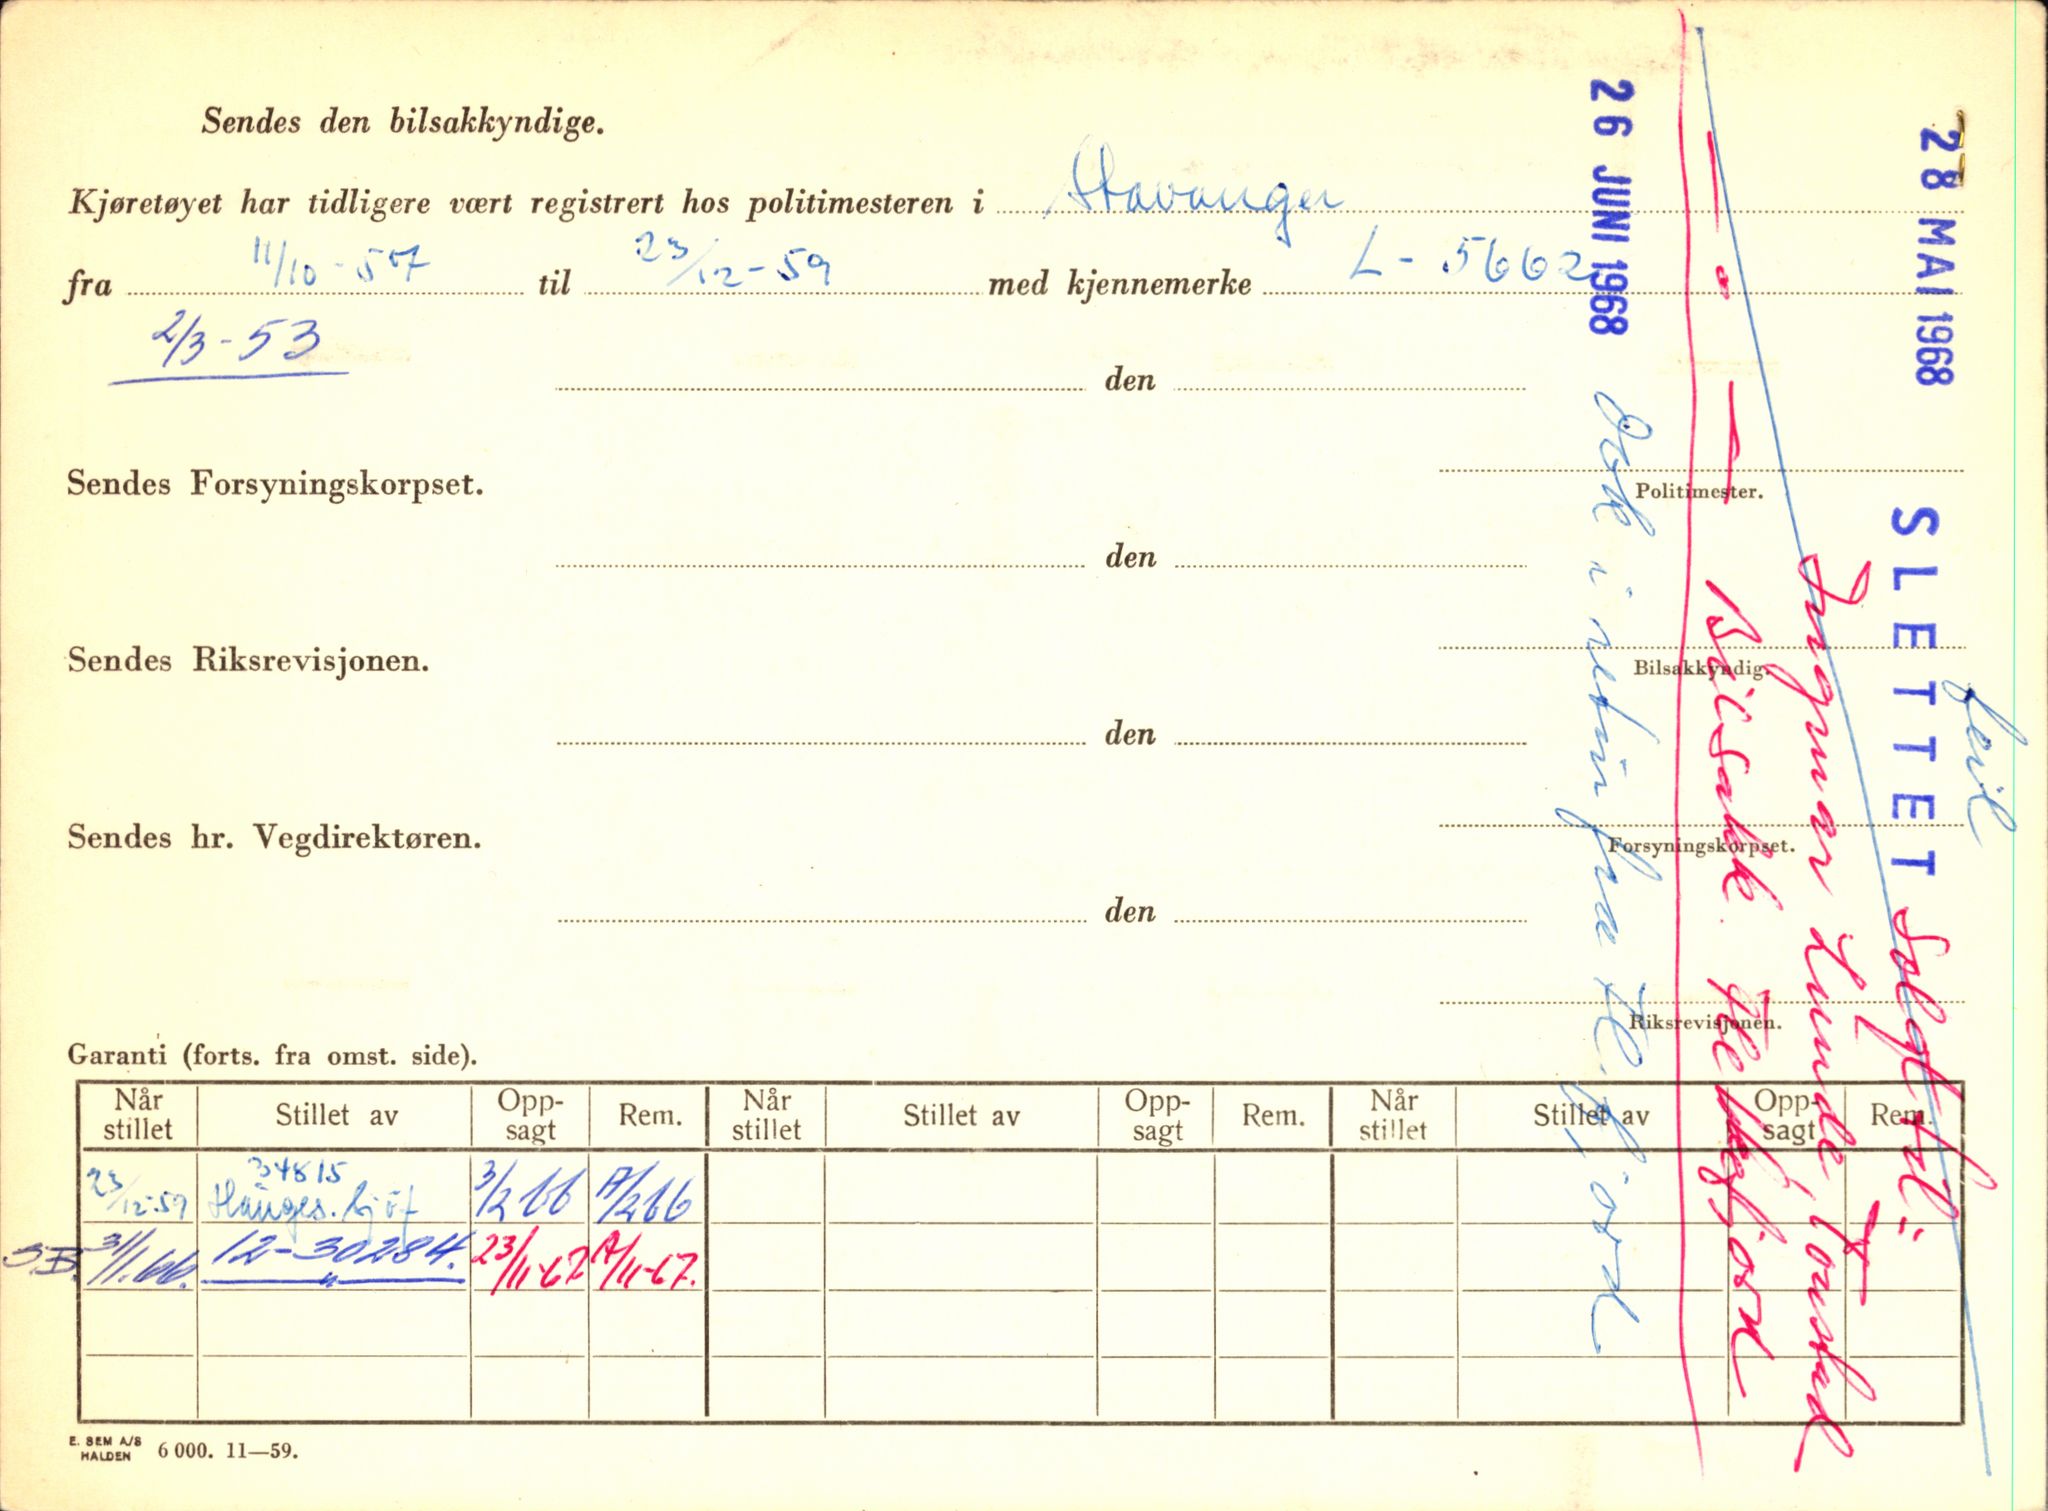 Sendes den bilsakkyndige.
Kjøretøyet har tidligere vært registrert hos politimesteren i Stavanger
fra 11/10-57 til 23/12-59 med kjennemerke L-5662
2/3-53
den
Politimester.
Sendes Forsyningskorpset.
den
Bilsakkyndig.
Sendes Riksrevisjonen.
den
Forsyningskorpset.
Sendes hr. Vegdirektøren.
den
Riksrevisjonen.
Garanti (forts. fra omst. side).
Når stillet Stillet av Opp-sagt Rem. Når stillet Stillet av Opp-sagt Rem. Når stillet Stillet av Opp-sagt Rem.
34815
23/12-59 Hauges. 3/2 66 A/2 66
S.B. 31/1.66. 12-30284. 23/11-67 A/11-67.
E. SEM A/S
HALDEN 6 000. 11—59.
28 MAI 1968 SLETTET Solgt til:
feil
Ingmar Lunde, Tonstad
Bilsakk. Flekkefjord
26 JUNI 1968 i retur fra Fl.fjord